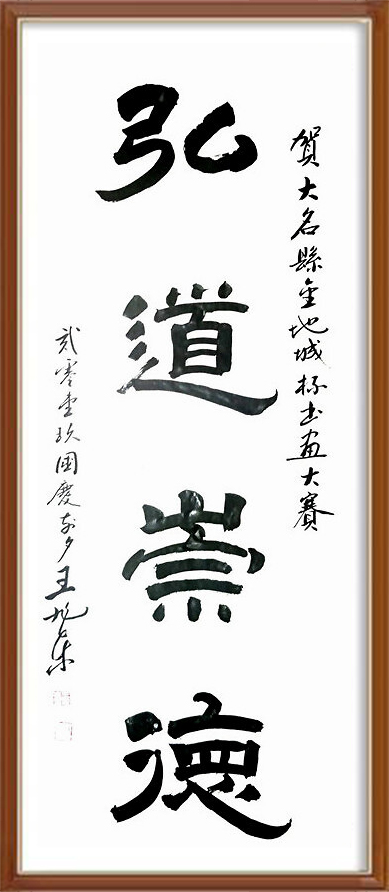 弘道崇德
賀大名縣金地城杯书畫大賽
贰零壹玖國慶前夕王旭